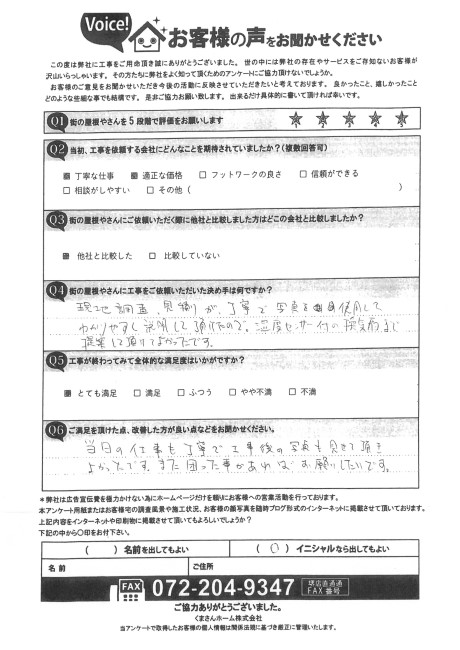 Voice!
お客様の声をお聞かせください
この度は弊社に工事をご用命頂き誠にありがとうございました。 世の中には弊社の存在やサービスをご存知ないお客様が
沢山いらっしゃいます。 その方たちに弊社をよく知って頂くためのアンケートにご協力頂けないでしょうか。
お客様のご意見をお聞かせいただき今後の活動に反映させていただきたいと考えております。 良かったこと、嬉しかったこと
どのような些細な事でも結構です。 是非ご協力お願い致します。 出来るだけ具体的に書いて頂ければ幸いです。
Q1 街の屋根やさんを5段階で評価をお願いします
1 2 3 4 5
Q2 当初、工事を依頼する会社にどんなことを期待されていましたか?(複数回答可)
■ 丁寧な仕事 ■ 適正な価格 □ フットワークの良さ □ 信頼ができる
□ 相談がしやすい □ その他 ( )
Q3 街の屋根やさんにご依頼いただく際に他社と比較しました方はどこの会社と比較しましたか?
■ 他社と比較した □ 比較していない
Q4 街の屋根やさんに工事をご依頼いただいた決め手は何ですか?
現地調査、見積りが、丁寧で写真を使用して
わかりやすく説明して頂けたので。湿度センサー付の換気扇まで
提案して頂けてよかったです。
Q5 工事が終わってみて全体的な満足度はいかがですか?
■ とても満足 □ 満足 □ ふつう □ やや不満 □ 不満
Q6 ご満足を頂けた点、改善した方が良い点などをお聞かせください。
当日の仕事も丁寧で工事後の写真も見せて頂き
よかったです。また困った事があればお願いしたいです。
*弊社は広告宣伝費を極力かけない為にホームページだけを頼りにお客様への営業活動を行っております。
本アンケート用紙またはお客様宅の調査風景や施工状況、お客様の顔写真を随時ブログ形式のインターネットに掲載させて頂いております。
上記内容をインターネットや印刷物に掲載させて頂いてもよろしいでしょうか?
下記の中から〇印をお付下さい。
( ) 名前を出してもよい (○) イニシャルなら出してもよい
名前 ご住所
FAX 072-204-9347 堺店直通過 FAX番号
ご協力ありがとうございました。
くまさんホーム株式会社
当アンケートで取得したお客様の個人情報は関係法規に基づき厳正に管理いたします。